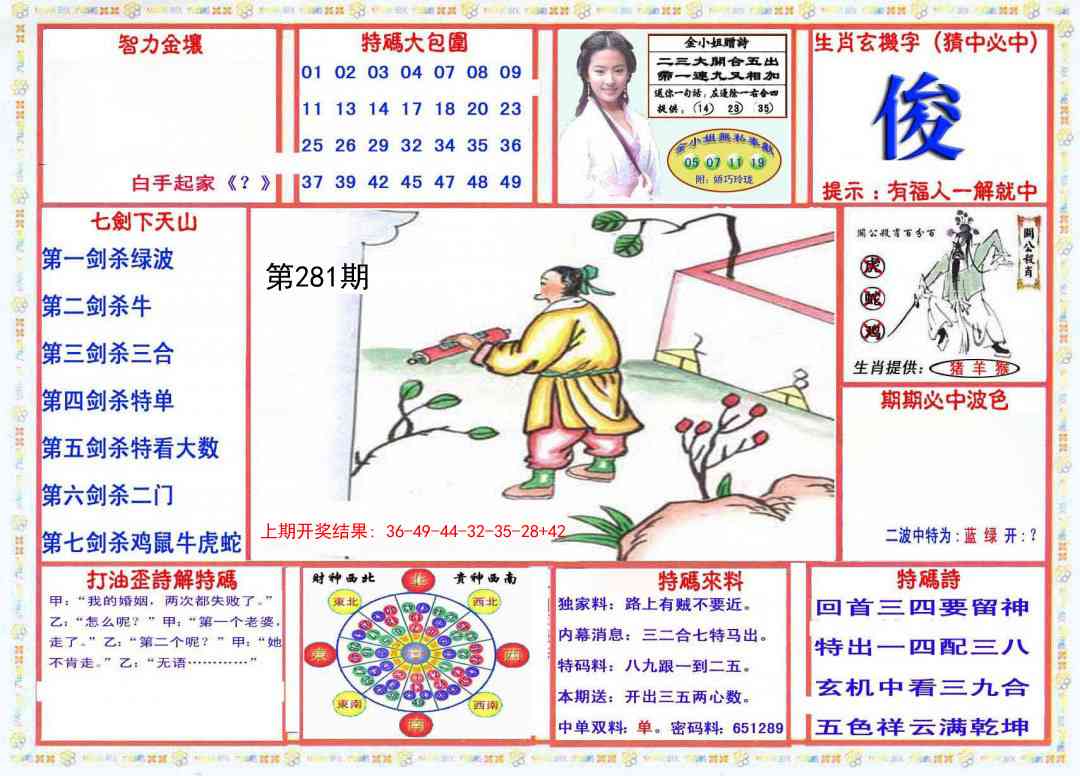 智力金壤
白手起家《？》
特碼大包圍
01 02 03 04 07 08 09
11 13 14 17 18 20 23
25 26 29 32 34 35 36
37 39 42 45 47 48 49
金小姐贈詩
二三大開合五出
第一連九又相加
送你一句話，左邊除一右合四
提供：(14) 23 35)
金小姐無私奉獻
05 07 11 19
附：娇巧玲珑
生肖玄機字（猜中必中）
俊
提示：有福人一解就中
七劍下天山
第一剑杀绿波
第二剑杀牛
第三剑杀三合
第四剑杀特单
第五剑杀特看大数
第六剑杀二门
第七剑杀鸡鼠牛虎蛇
第281期
上期开奖结果：36-49-44-32-35-28+42
關公殺肖百分百
關公殺肖
虎
蛇
鸡
生肖提供：猪 羊 猴
期期必中波色
二波中特为：蓝 绿 开：？
打油歪詩解特碼
甲：“我的婚姻，两次都失败了。”
乙：“怎么呢？”甲：“第一个老婆，
走了。”乙：“第二个呢？”甲：“她
不肯走。”乙：“无语…………”
財神西北
貴神西南
北
東北
西北
東
西
東南
西南
南
特碼來料
独家料：路上有贼不要近。
内幕消息：三二合七特马出。
特码料：八九跟一到二五。
本期送：开出三五两心数。
中单双料：单。密码料：651289
特碼詩
回首三四要留神
特出一四配三八
玄机中看三九合
五色祥云满乾坤